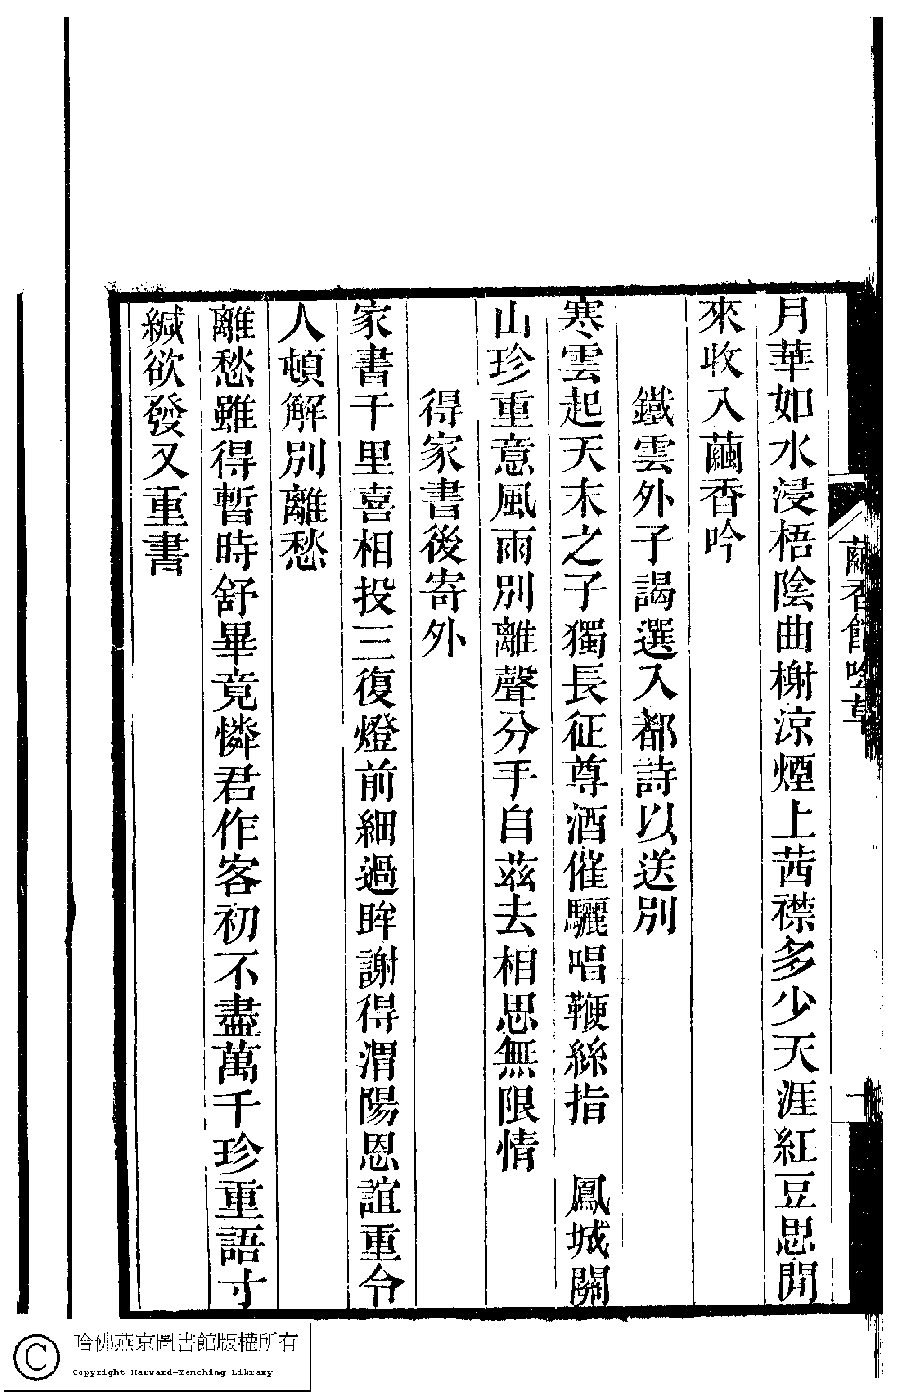 繭香館吟草
十
月華如水浸梧陰曲榭涼煙上茜襟多少天涯紅豆思閒
來收入繭香吟
鐵雲外子謁選入都詩以送別
寒雲起天末之子獨長征尊酒催驪唱鞭絲指 鳳城關
山珍重意風雨別離聲分手自茲去相思無限情
得家書後寄外
家書千里喜相投三復燈前細過眸謝得渭陽恩誼重令
人頓解別離愁
離愁雖得暫時舒畢竟憐君作客初不盡萬千珍重語寸
緘欲發又重書
哈佛燕京圖書館版權所有
Copyright Harvard-Yenching Library